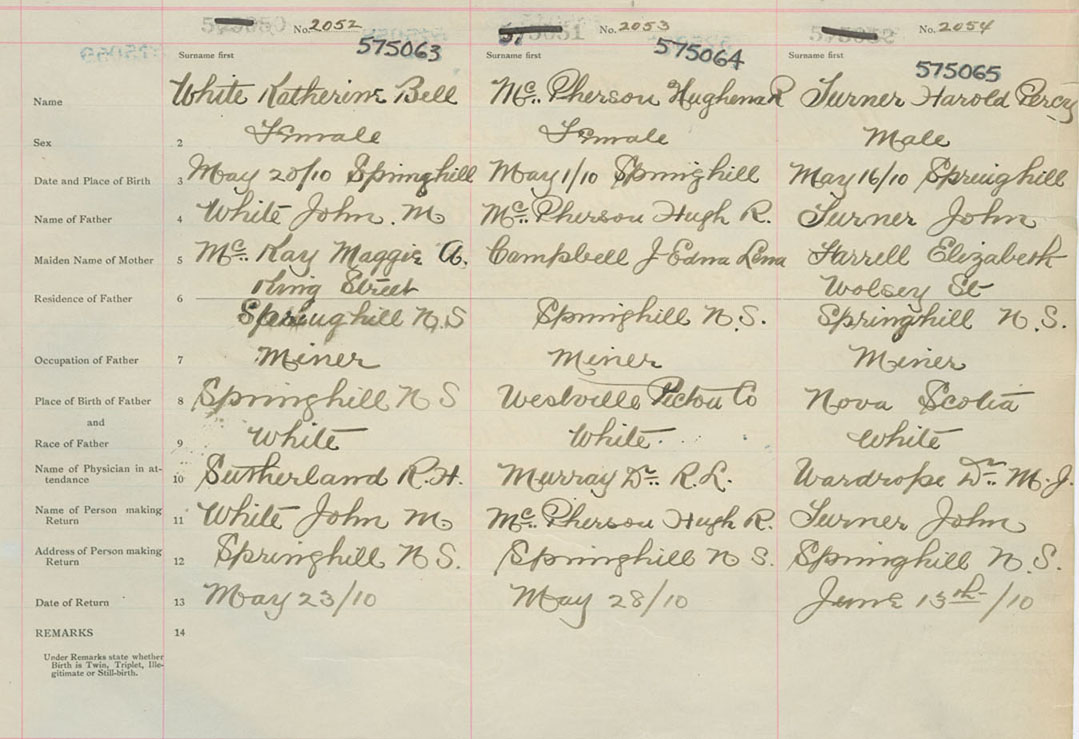 No. 2052 No. 2053 No. 2054
575063 575064 575065
Surname first Surname first Surname first
Name White Katherine Bell Mc. Pherson Hughena R Turner Harold Percy
Sex 2 Female Female Male
Date and Place of Birth 3 May 20/10 Springhill May 1/10 Springhill May 16/10 Springhill
Name of Father 4 White John. M. Mc. Pherson Hugh R. Turner John
Maiden Name of Mother 5 Mc. Kay Maggie A. Campbell J Edna Lena Farrell Elizabeth
King Street Wolsey St
Residence of Father 6
Springhill N.S Springhill N.S. Springhill N.S.
Occupation of Father 7 Miner Miner Miner
Place of Birth of Father 8 Springhill N S Westville Pictou Co Nova Scotia
and
Race of Father 9 White White White
Name of Physician in at-
tendance 10 Sutherland R.H. Murray Dr. R.L. Wardrope Dr. M.J.
Name of Person making
Return 11 White John M. Mc. Pherson Hugh R. Turner John
Address of Person making
Return 12 Springhill N S. Springhill N S. Springhill N S.
Date of Return 13 May 23/10 May 28/10 June 13th/10
REMARKS 14
Under Remarks state whether
Birth is Twin, Triplet, Ille-
gitimate or Still-birth.